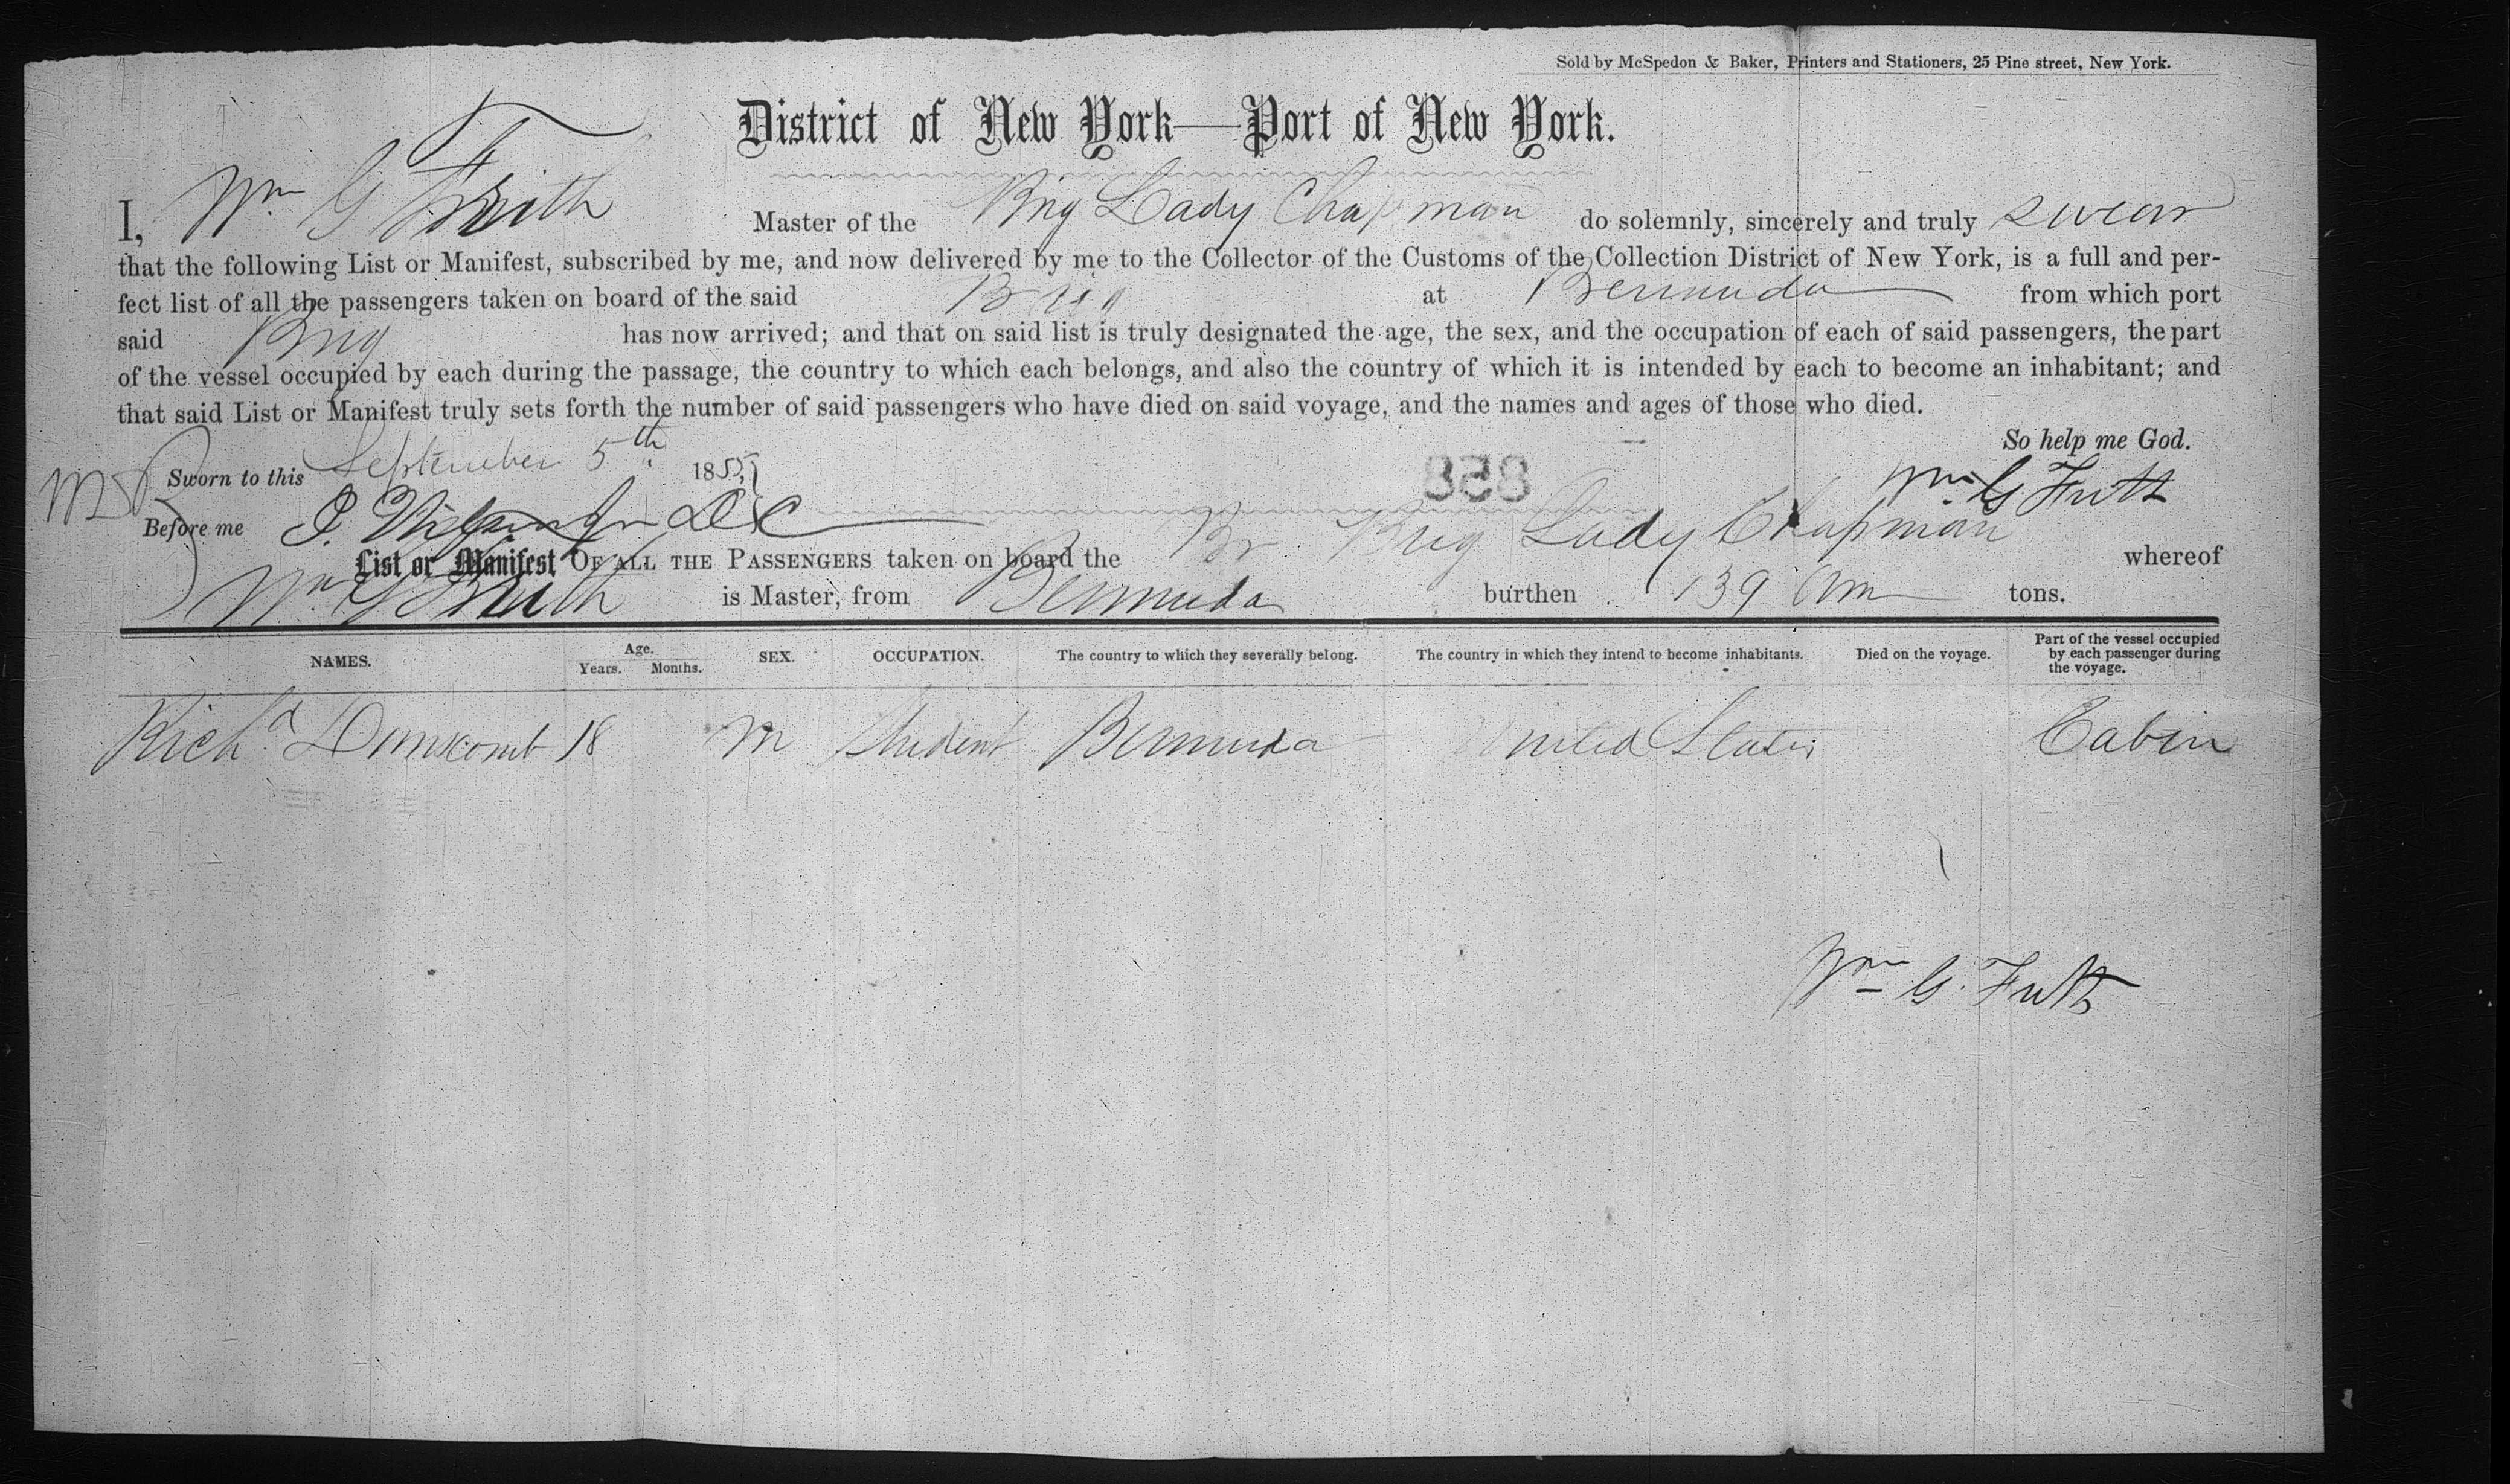 Sold by McSpedon & Baker, Printers and Stationers, 25 Pine street, New York.
District of New York—Port of New York.
I, Wm G Master of the Brig Lady Chapman do solemnly, sincerely and truly swear
that the following List or Manifest, subscribed by me, and now delivered by me to the Collector of the Customs of the Collection District of New York, is a full and per-
fect list of all the passengers taken on board of the said Brig at Bermuda from which port
said Brig has now arrived; and that on said list is truly designated the age, the sex, and the occupation of each of said passengers, the part
of the vessel occupied by each during the passage, the country to which each belongs, and also the country of which it is intended by each to become an inhabitant; and
that said List or Manifest truly sets forth the number of said passengers who have died on said voyage, and the names and ages of those who died.
So help me God.
Sworn to this September 5th 1855
858
Wm G
Before me D C
List or Manifest OF ALL THE PASSENGERS taken on board the Br. Brig Lady Chapman whereof
Wm G is Master, from Bermuda burthen 139 tons.
NAMES. Age. Years. Months. SEX. OCCUPATION. The country to which they severally belong. The country in which they intend to become inhabitants. Died on the voyage. Part of the vessel occupied by each passenger during the voyage.
Richd Dunscomb 18 M Student Bermuda United States Cabin
Wm G.